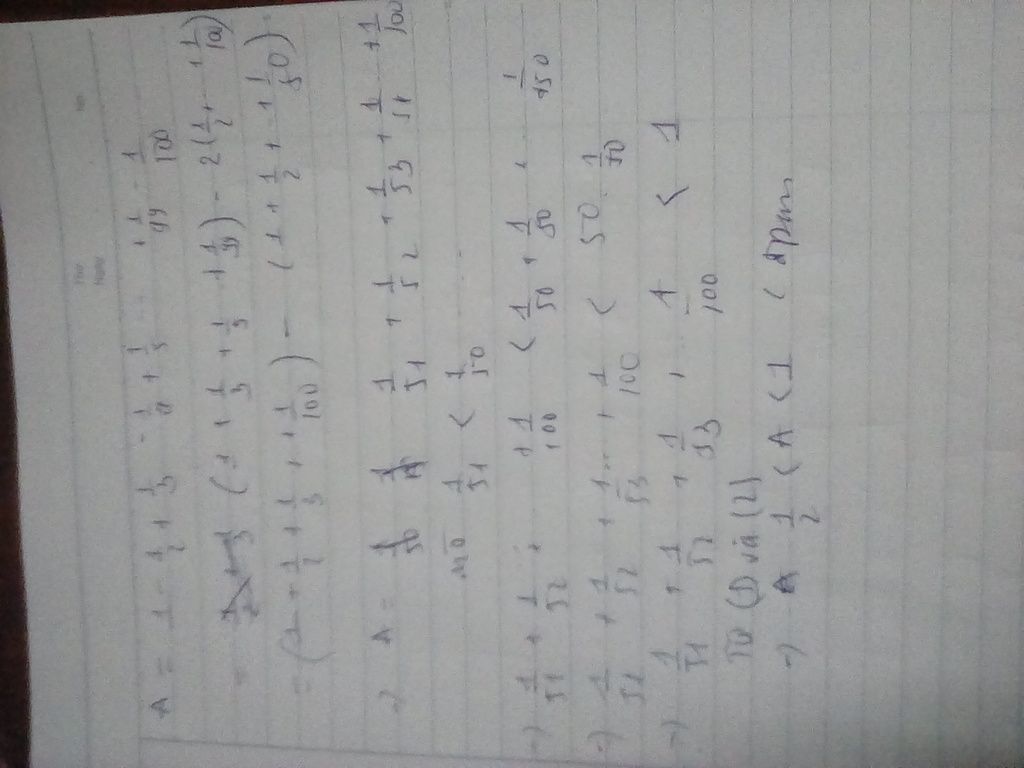 A = 1 - 1/2 + 1/3 - 1/4 + 1/5 ... + 1/99 - 1/100
= (1 + 1/3 + 1/3 + 1/99) - 2(1/2 + + 1/100)
= (1 + 1/2 + 1/3 + + 1/100) - (1 + 1/2 + + 1/50)
=> A = 1/51 + 1/52 + 1/53 + 1/54 + 1/100
mà 1/51 < 1/50 ....
=> 1/51 + 1/52 + + 1/100 < 1/50 + 1/50 + 1/50
=> 1/51 + 1/52 + 1/53 + ... + 1/100 < 50 . 1/50
=> 1/51 + 1/52 + 1/53 + 1/100 < 1
Từ (1) và (2)
=> 1/2 < A < 1 (đpcm